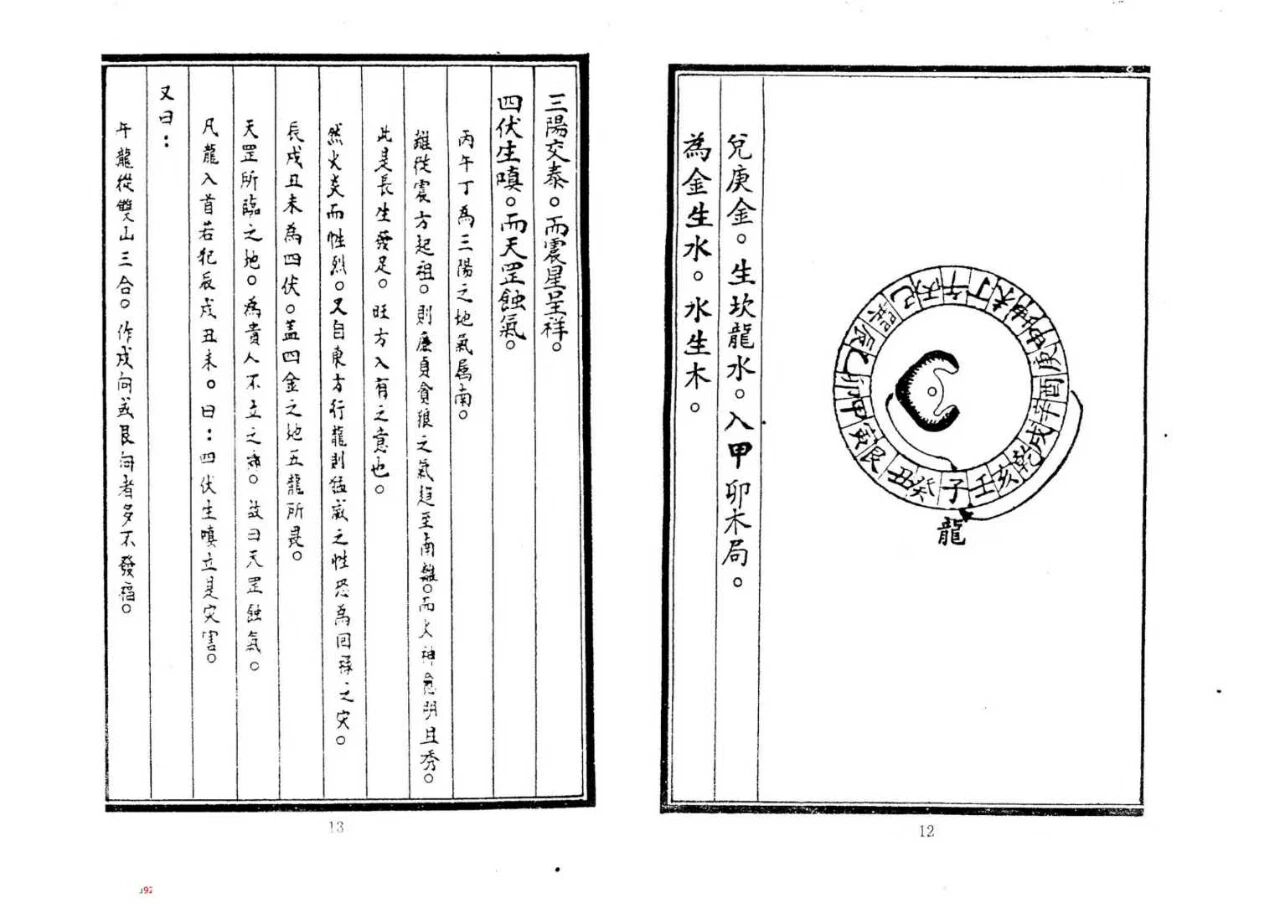 兌庚金。生坎龍水。入甲卯木局。
為金生水。水生木。
午丁未坤申庚酉辛戌乾亥壬子癸丑艮寅甲卯乙辰巽巳丙
龍
12
三陽交泰。而震星呈祥。
四伏生嗔。而天罡蝕氣。
丙午丁為三陽之地氣屬南。
離從震方起祖。則廉貞貪狼之氣趕至南離。而火神愈明且秀。
此是長生發足。旺方入有之意也。
然火炎而性烈。又自東方行龍則猛威之性恐為回祿之灾。
辰戌丑未為四伏。盖四金之地五龍所畏。
天罡所臨之地。為貴人不立之鄉。故曰天罡蝕氣。
凡龍入首若犯辰戌丑未。曰：四伏生嗔立是灾害。
又曰：
午龍從雙山三合。作戌向或艮向者多不發福。
13
192